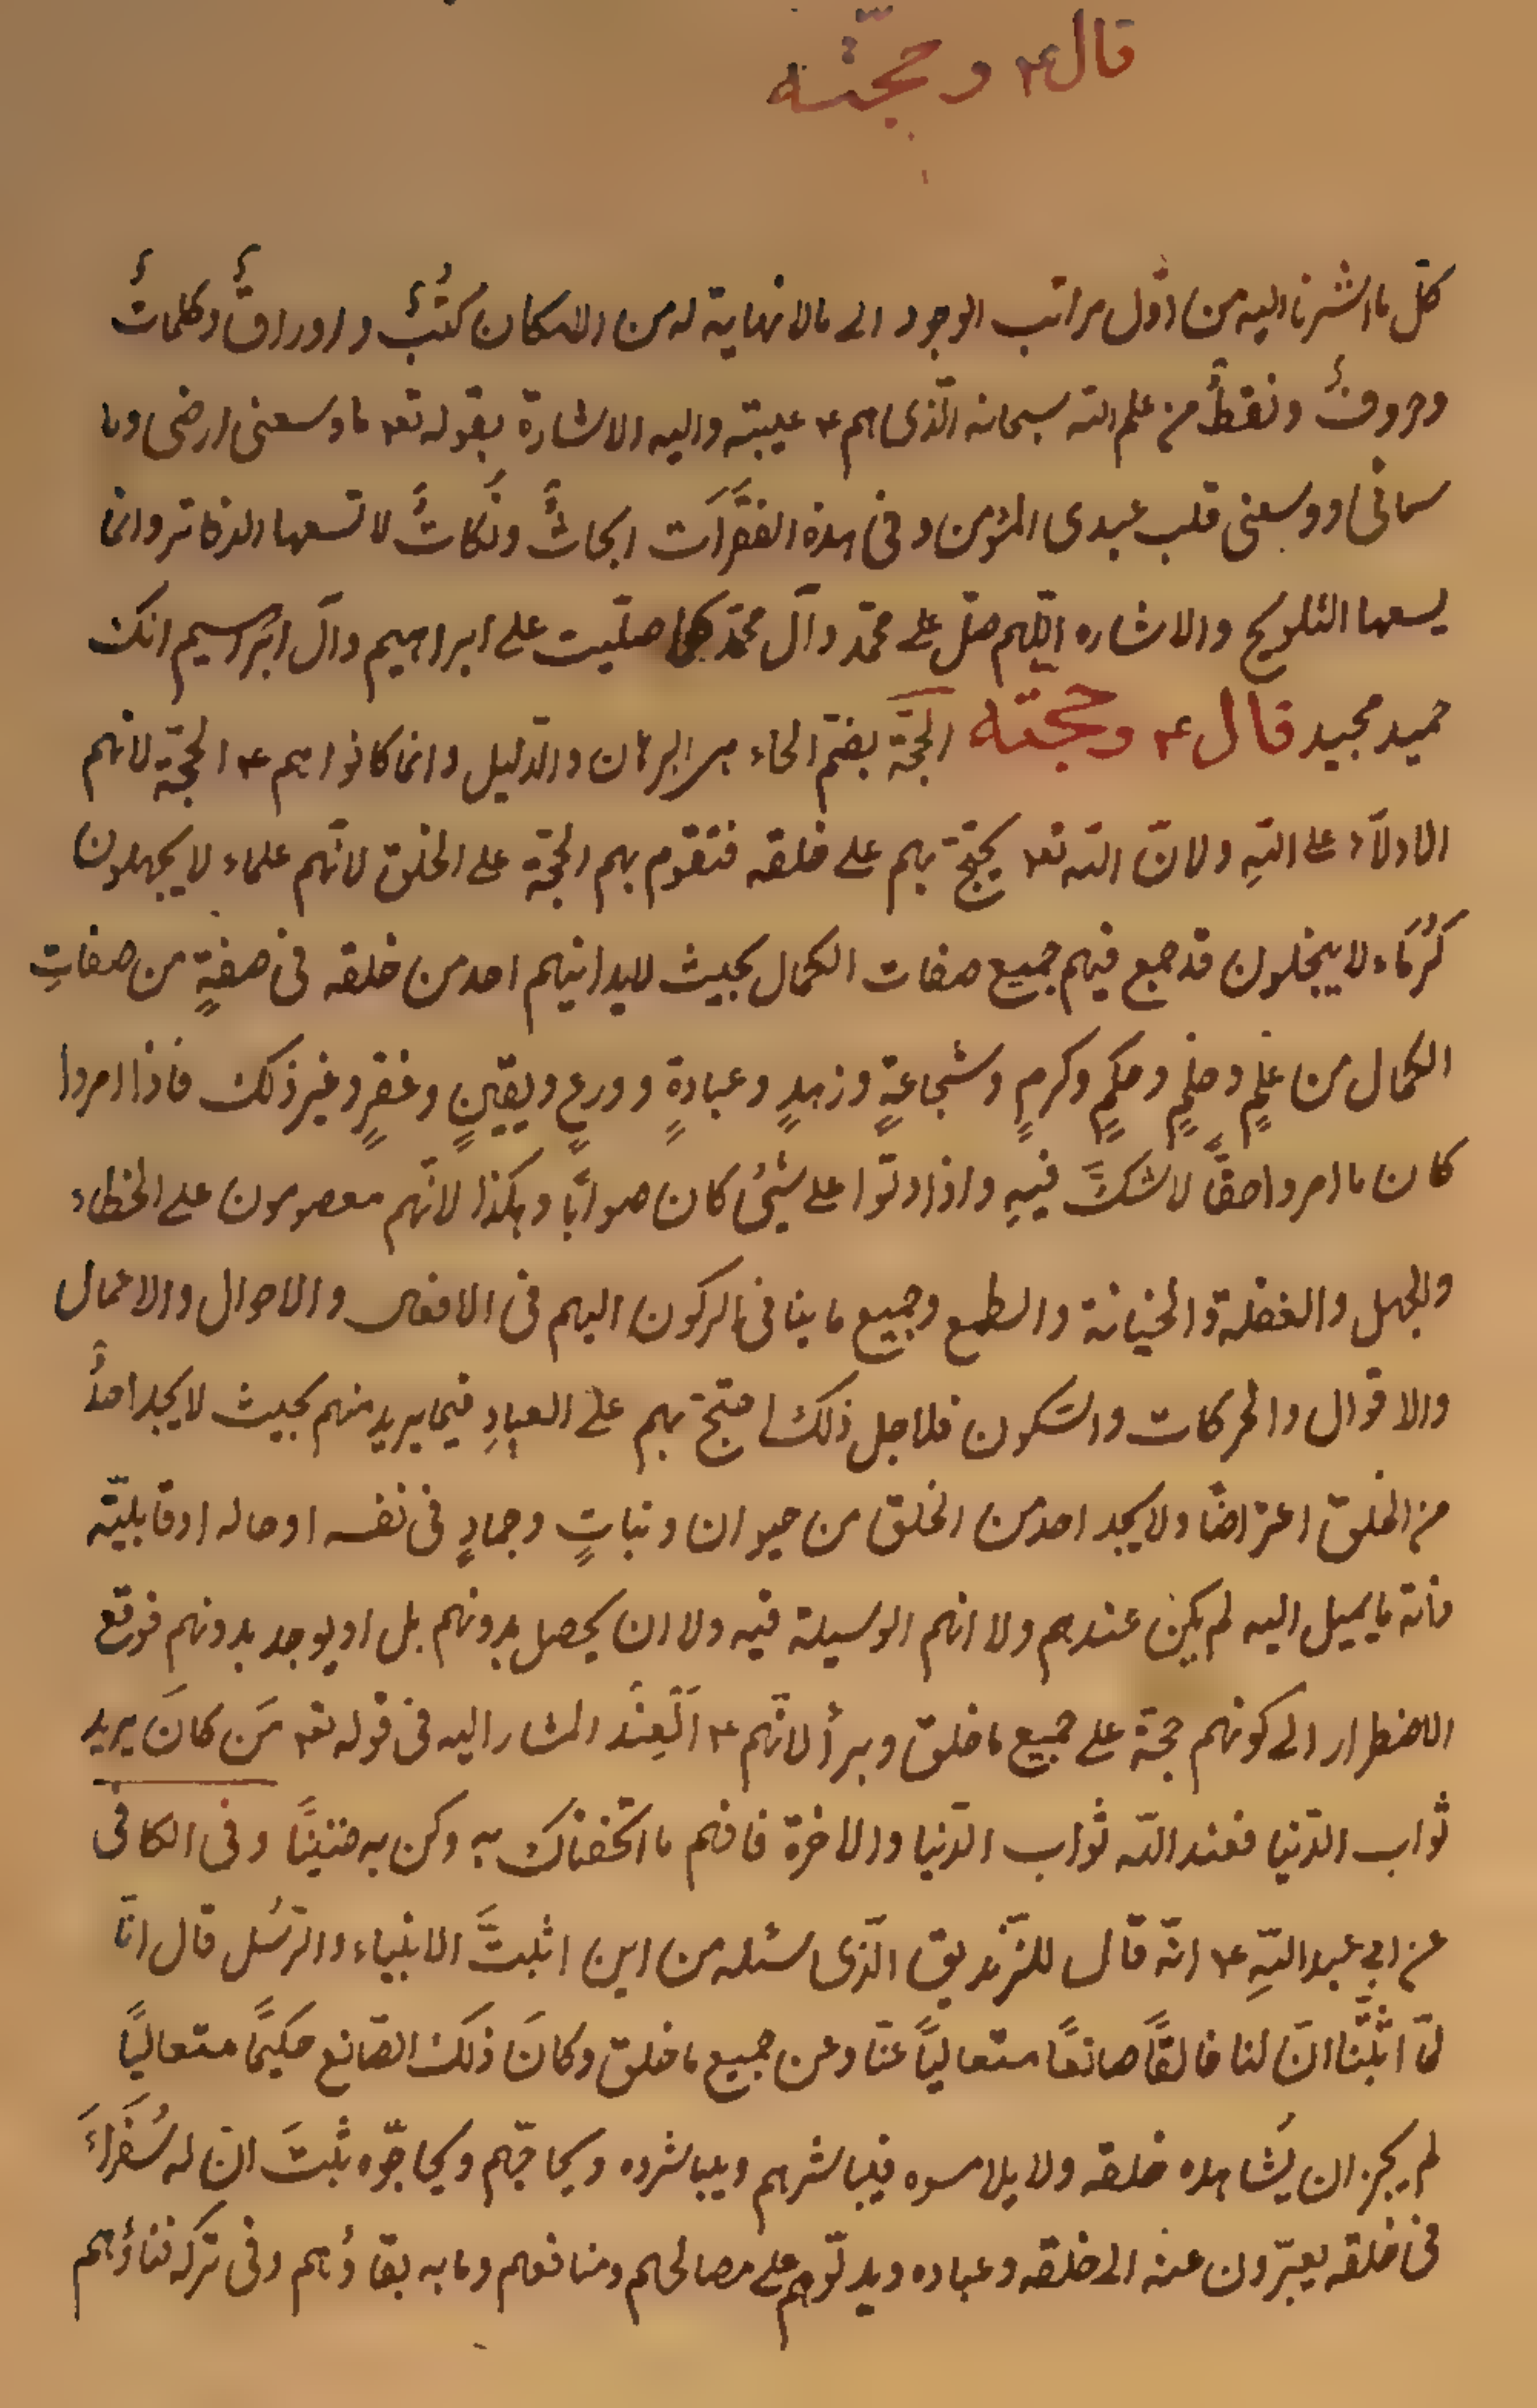 قال ع وحجّته
كلّ ما اشرنا اليه من اوّل مراتب الوجود الى مالا نهاية له من الامكان كتُبٌ و اوراقٌ وكلماتٌ
وحروفٌ ونقطٌ من علم الله سبحانه الّذى هم ع عيبته واليه الاشارة بقوله تع ما وسعنى ارضى وما
سمائى ووسعنى قلب عبدى المؤمن وفى هذه الفقَرَات ابحاثٌ ونكاتٌ لا تسعها الدفاتر وانما
يسعها التلويح والاشاره اللهم صلّ على محمّد وآل محمّد كما صلّيت على ابراهيم وآل ابراهيم انك
حميد مجيد قال ع وحجّته الحجّة بضمّ الحاء هى البرهان والدّليل وانما كانوا هم ع الحجّة لانهم
الادلّاء على اللهِ ولانّ الله تع يحتجّ بهم على خلقه فتقوم بهم الحجّة على الخلق لانّهم علماء لا يجهلون
كُرَماء لا يبخلون قد جمع فيهم جميع صفات الكمال بحيث لايدانيهم احد من خلقه فى صفةٍ من صفاتِ
الكمال من علمٍ وحلمٍ وحكمٍ وكرمٍ وشجاعةٍ وزهدٍ وعبادةٍ وورعٍ ويقينٍ وفقرٍ وغير ذلك فاذا امروا
كان ما امروا حقًّا لا شكَّ فيهِ واذا دلّوا على شئٍ كان صوابًا وهكذا لانّهم معصومون على الخطاء
والجهل والغفلة والخيانة والطمع وجميع ما ينافى الركون اليهم فى الافعال والاحوال والاعمال
والاقوال والحركات والسّكون فلاجل ذلك احتجّ بهم على العبادِ فيما يريد منهم بحيث لا يجد احدٌ
من الخلق اعتراضًا ولا يجد احد من الخلق من حيوان ونباتٍ وجمادٍ فى نفسه او حاله او قابليّته
فانه ما يميل اليه لم يكن عندهم ولا انهم الوسيلة فيه ولا ان يحصل بدونهم بل او يوجد بدونهمِ فوقع
الاضطرار الى كونهم حجّة على جميع ما خلق وبرأ لانّهم ع اَلْعِنْد المشار اليه فى قوله تع مَن كانَ يريد
ثواب الدّنيا فعند الله ثواب الدّنيا والاخرة فافهم ما اتحفناك به وكن به ضنينًا وفى الكافى
عن ابى عبد اللهِ ع انّه قال للزّنديق الّذى سئله من اين اثبتَّ الانبياء والرّسُل قال انّا
لمّا اثبَتْنا انّ لنا خالقًا صانعًا متعاليًا عنّا وعن جميع ما خلق وكانَ ذلك الصّانع حكيمًا متعاليًا
لم يجز ان يُشاهده خلقه ولا يلامسوه فيباشرهم ويباشروه ويحاجّهم ويحاجّوه ثبتَ انّ له سُفَراءَ
فى خلقه يعبّرون عنه الى خلقه وعباده ويدلّونهم على مصالحهم ومنافعهم وما به بقاؤُهم وفى تركه فناؤُهم